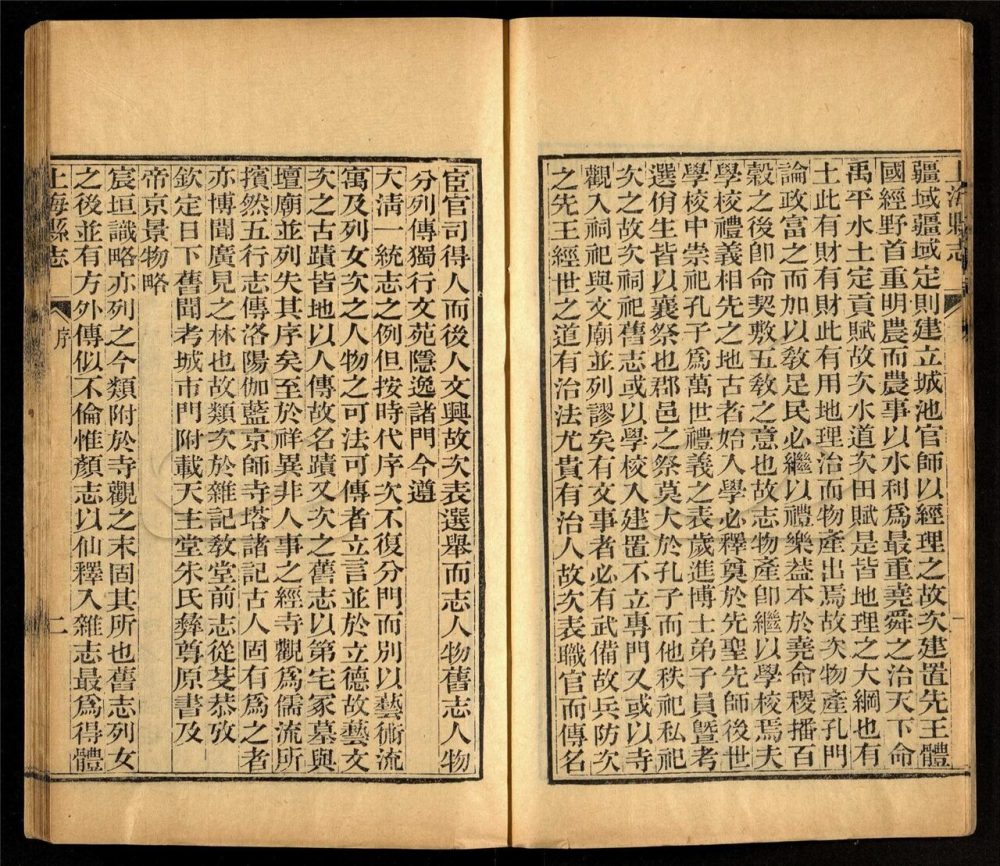 上海縣志
一
疆域疆域定則建立城池官師以經理之故次建置先王體
國經野首重明農而農事以水利爲最重堯舜之治天下命
禹平水土定貢賦故次水道次田賦是皆地理之大綱也有
土此有財有財此有用地理治而物產出焉故次物產孔門
論政富之而加以敎足民必繼以禮樂益本於堯命稷播百
穀之後卽命契敷五敎之意也故志物產卽繼以學校焉夫
學校禮義相先之地古者始入學必釋奠於先聖先師後世
學校中崇祀孔子爲萬世禮義之表歲進博士弟子員曁考
選佾生皆以襄祭也郡邑之祭莫大於孔子而他秩祀私祀
次之故次祠祀舊志或以學校入建置不立專門又或以寺
觀入祠祀與文廟並列謬矣有文事者必有武備故兵防次
之先王經世之道有治法尤貴有治人故次表職官而傳名
宦官司得人而後人文興故次表選舉而志人物舊志人物
分列傳獨行文苑隱逸諸門今遵
大淸一統志之例但按時代序次不復分門而別以藝術流
寓及列女次之人物之可法可傳者立言並於立德故藝文
次之古蹟皆地以人傳故名蹟又次之舊志以第宅冢墓與
壇廟並列失其序矣至於祥異非人事之經寺觀爲儒流所
擯然五行志傳洛陽伽藍京師寺塔諸記古人固有爲之者
亦博聞廣見之林也故類次於雜記敎堂前志從芟恭攷
欽定日下舊聞考城市門附載天主堂朱氏彝尊原書及
帝京景物略
宸垣識略亦列之今類附於寺觀之末固其所也舊志列女
之後並有方外傳似不倫惟顏志以仙釋入雜志最爲得體
上海縣志
序
二